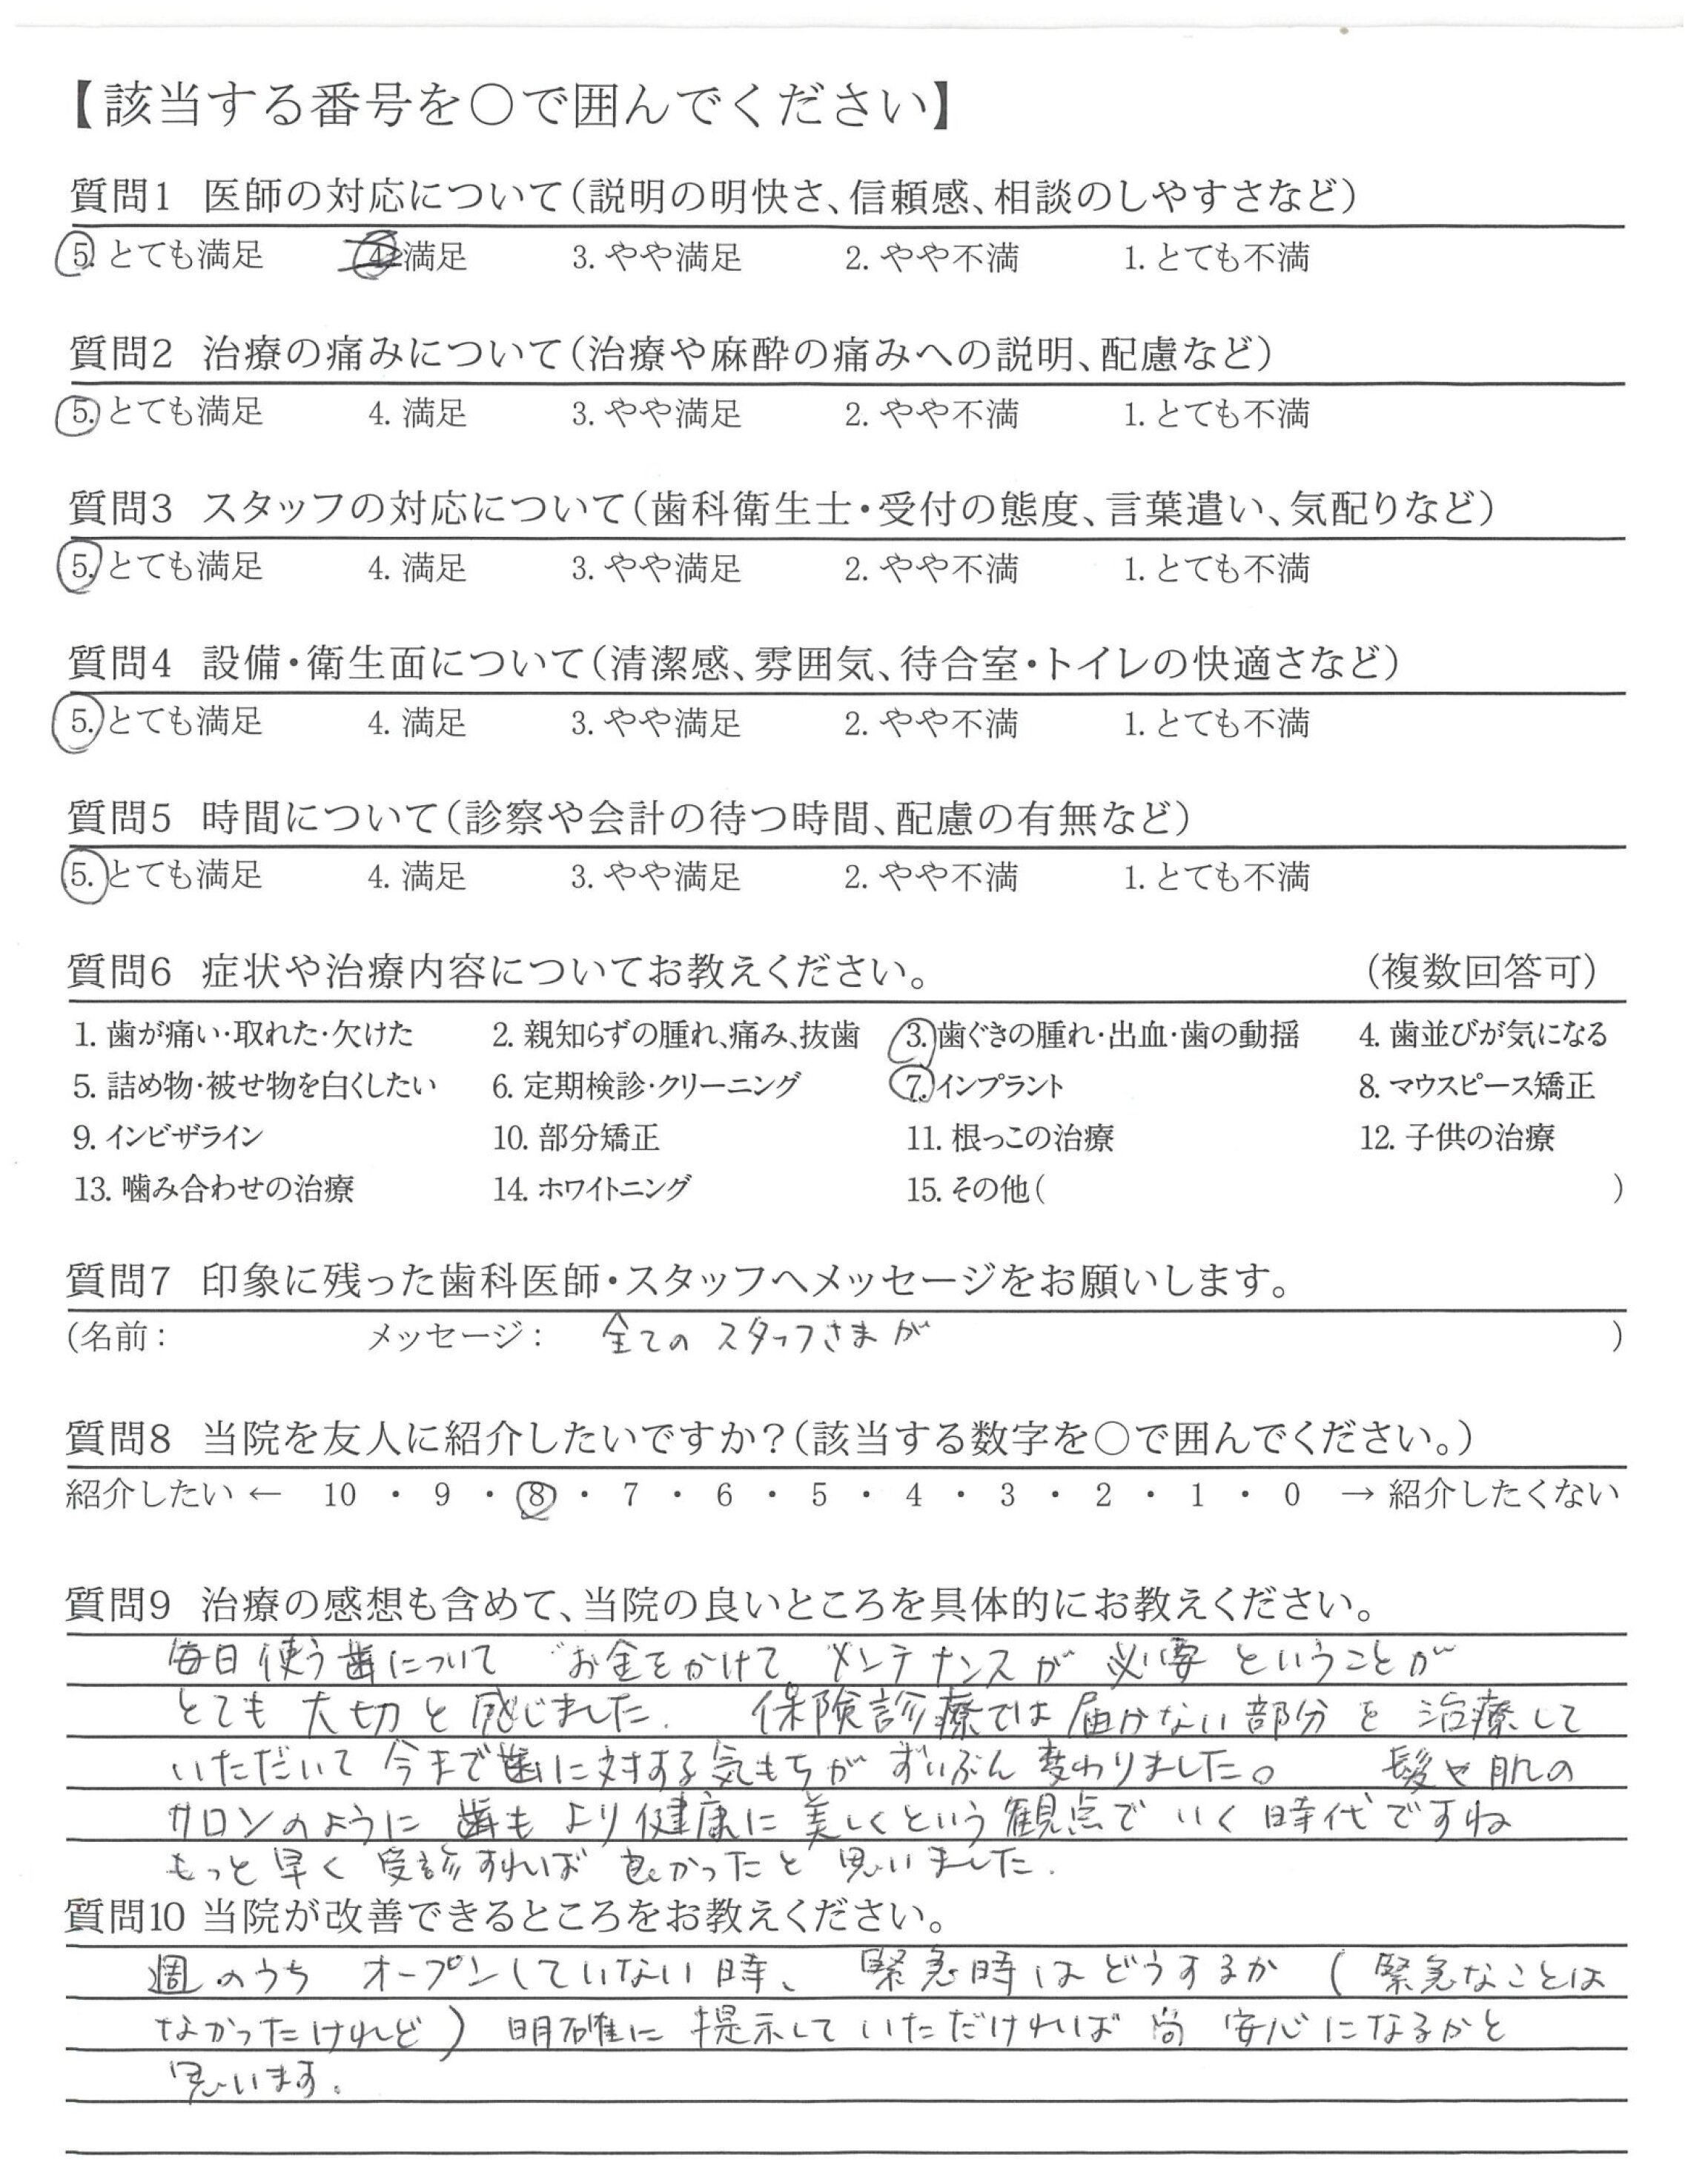 【該当する番号を○で囲んでください】
質問1 医師の対応について(説明の明快さ、信頼感、相談のしやすさなど)
5. とても満足 4. 満足 3. やや満足 2. やや不満 1. とても不満
質問2 治療の痛みについて(治療や麻酔の痛みへの説明、配慮など)
5. とても満足 4. 満足 3. やや満足 2. やや不満 1. とても不満
質問3 スタッフの対応について(歯科衛生士・受付の態度、言葉遣い、気配りなど)
5. とても満足 4. 満足 3. やや満足 2. やや不満 1. とても不満
質問4 設備・衛生面について(清潔感、雰囲気、待合室・トイレの快適さなど)
5. とても満足 4. 満足 3. やや満足 2. やや不満 1. とても不満
質問5 時間について(診察や会計の待つ時間、配慮の有無など)
5. とても満足 4. 満足 3. やや満足 2. やや不満 1. とても不満
質問6 症状や治療内容についてお教えください。 (複数回答可)
1. 歯が痛い・取れた・欠けた 2. 親知らずの腫れ、痛み、抜歯 3. 歯ぐきの腫れ・出血・歯の動揺 4. 歯並びが気になる
5. 詰め物・被せ物を白くしたい 6. 定期検診・クリーニング 7. インプラント 8. マウスピース矯正
9. インビザライン 10. 部分矯正 11. 根っこの治療 12. 子供の治療
13. 噛み合わせの治療 14. ホワイトニング 15. その他( )
質問7 印象に残った歯科医師・スタッフへメッセージをお願いします。
(名前: メッセージ: 全ての スタッフさまが )
質問8 当院を友人に紹介したいですか?(該当する数字を○で囲んでください。)
紹介したい ← 10 ・ 9 ・ 8 ・ 7 ・ 6 ・ 5 ・ 4 ・ 3 ・ 2 ・ 1 ・ 0 → 紹介したくない
質問9 治療の感想も含めて、当院の良いところを具体的にお教えください。
毎日使う歯について お金をかけて メンテナンスが 必要 ということが
とても 大切と感じました. 保険診療では届かない部分を治療して
いただいて 今まで歯に対する気もちが ずいぶん変わりました。 髪や肌の
サロンのように 歯も より健康に美しくという観点で いく時代ですね
もっと早く受診すれば良かったと思いました.
質問10 当院が改善できるところをお教えください。
週のうち オープンしていない時、 緊急時はどうするか (緊急なことは
なかったけれど) 明確に提示していただければ尚安心になるかと
思います.